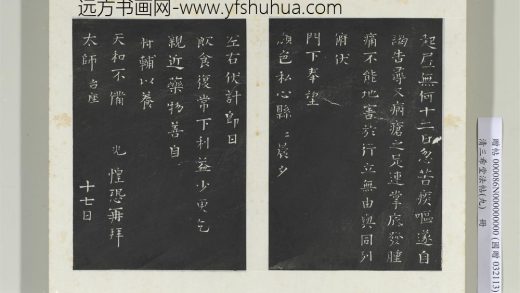 远方书画网-www.yfshuhua.com
起居無何十二日忽苦痰嘔遂自
謁告尋又病瘡之足連掌底發腫
痛不能地害於行立無由與同列
俯伏
門下奉望
顏色私心縣〻晨夕
左右伏計即日
飲食復常下利益少更乞
親近藥物善自
將輔以養
天和不備 光惶恐再拜
太師 台座
十七日
贈帖 000086N000000000 (國贈 032113)
清三希堂法帖(九) 冊